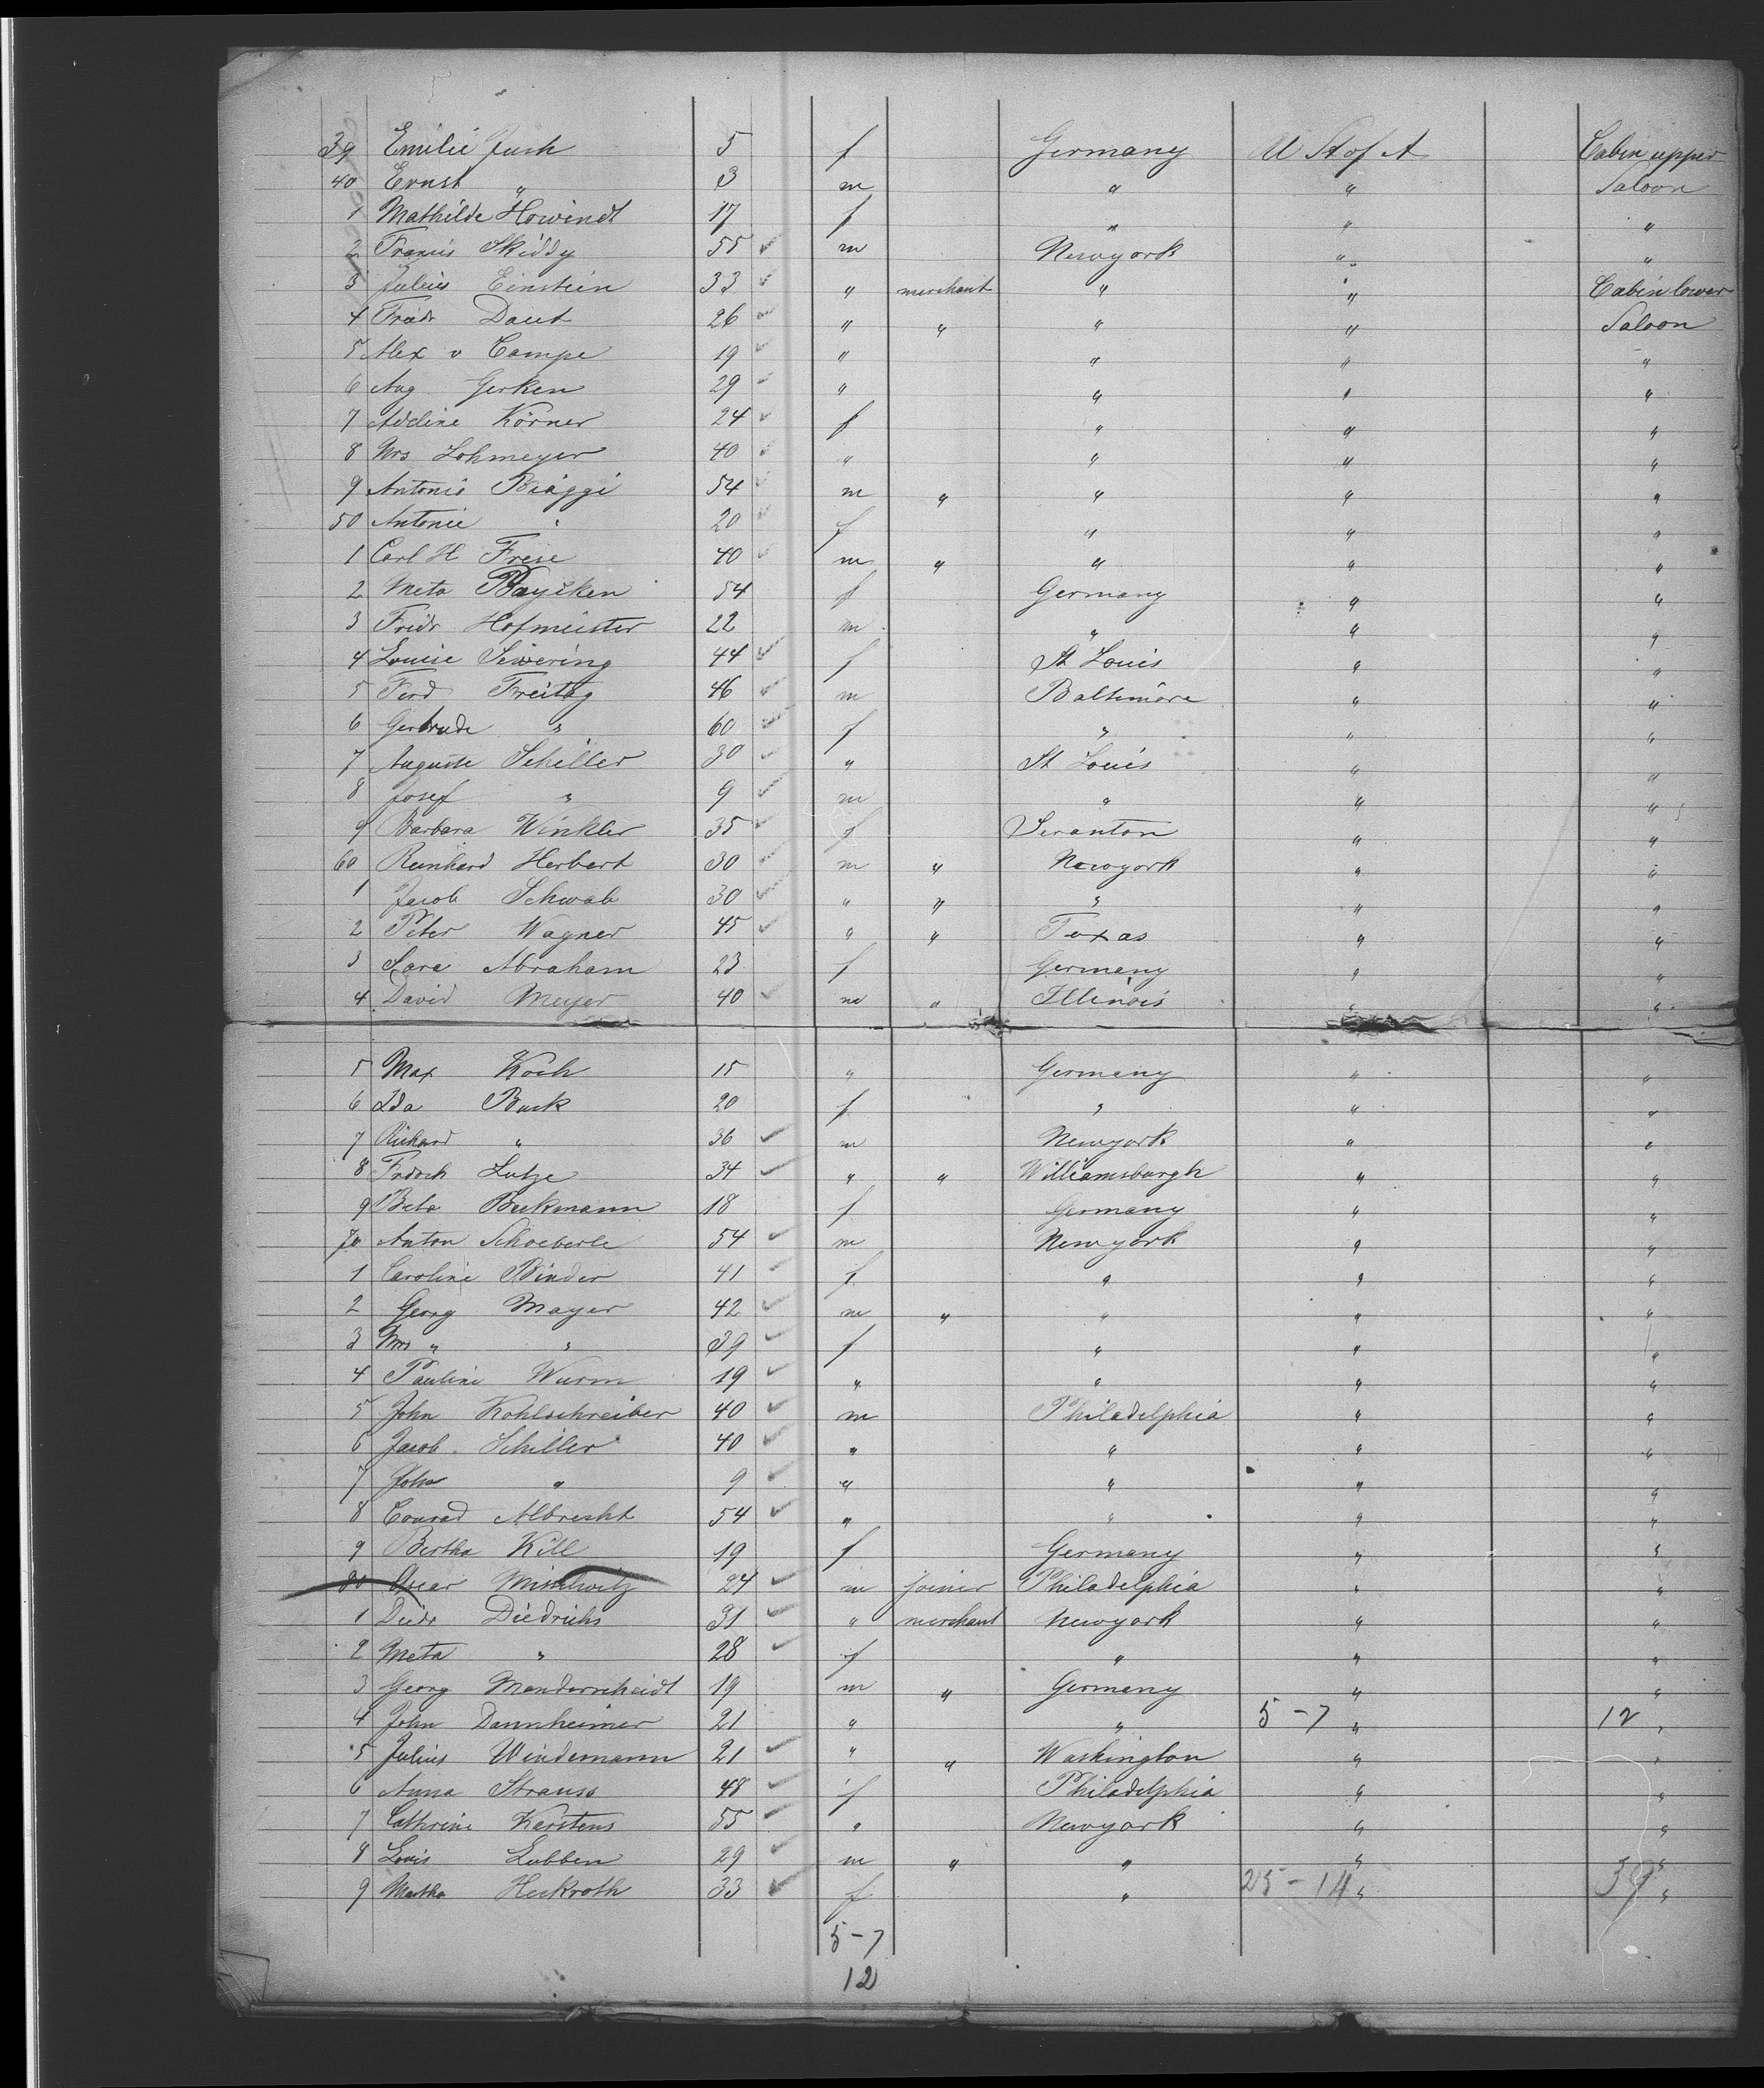 39 Emilie Jush 5 f Germany U St of A Cabin upper
40 Ernst " 3 m " " Saloon
1 Mathilde Howindt 17 f " " "
2 Francis Skiddy 55 m Newyork " "
3 Julius Einstein 33 " merchant " " Cabin lower
4 Friedr Daut 26 " " " " Saloon
5 Alex v Campe 19 " " " "
6 Aug Gerken 29 " " " "
7 Adeline Körner 24 f " " "
8 Mrs Lohmeyer 40 " " " "
9 Antonio Biaggi 54 m " " " "
50 Antonie " 20 f " " "
1 Carl H Frese 40 m " " " "
2 Meta 54 f Germany " "
3 Fridr Hofmeister 22 m " " "
4 Louise Sewering 44 f St Louis " "
5 Ferd Freitag 46 m Baltimore " "
6 Gertrude " 60 f " " "
7 Auguste Schiller 30 " St Louis " "
8 Josef " 9 m " " "
9 Barbara Winkler 35 f Scranton " "
60 Reinhard Herbert 30 m " Newyork " "
1 Jacob Schwab 30 " " " " "
2 Peter Wagner 45 " " Texas " "
3 Sara Abraham 23 f Germany " "
4 David Meyer 40 m " Illinois " "
5 Max Koch 15 " Germany " "
6 Ida Buck 20 f " " "
7 Richard " 36 m Newyork " "
8 Lutze 34 " " Williamsburgh " "
9 Beta Beckmann 18 f Germany " "
70 Anton Schoeberle 54 m Newyork " "
1 Caroline Binder 41 f " " "
2 Georg Mayer 42 m " " " "
3 Mrs " " 39 f " " "
4 Pauline Wurm 19 " " " "
5 John Kohlschreiber 40 m Philadelphia " "
6 Jacob Schiller 40 " " " "
7 John " 9 " " " "
8 Conrad Albrecht 54 " " " "
9 Bertha Kill 19 f Germany " "
80 Oscar 24 m joiner Philadelphia " "
1 Diedr Diedrichs 31 " merchant Newyork " "
2 Meta " 28 f " " "
3 Georg Manderscheidt 19 m " Germany " "
4 John Dannheimer 21 " " 5-7 " 12 "
5 Julius Windemann 21 " " Washington " "
6 Anna Strauss 48 f Philadelphia " "
7 Cathrine Karstens 55 " Newyork " "
8 Louis Lubben 29 m " " " "
9 Martha Heckroth 33 f " 25-14 " 39 "
5-7
12